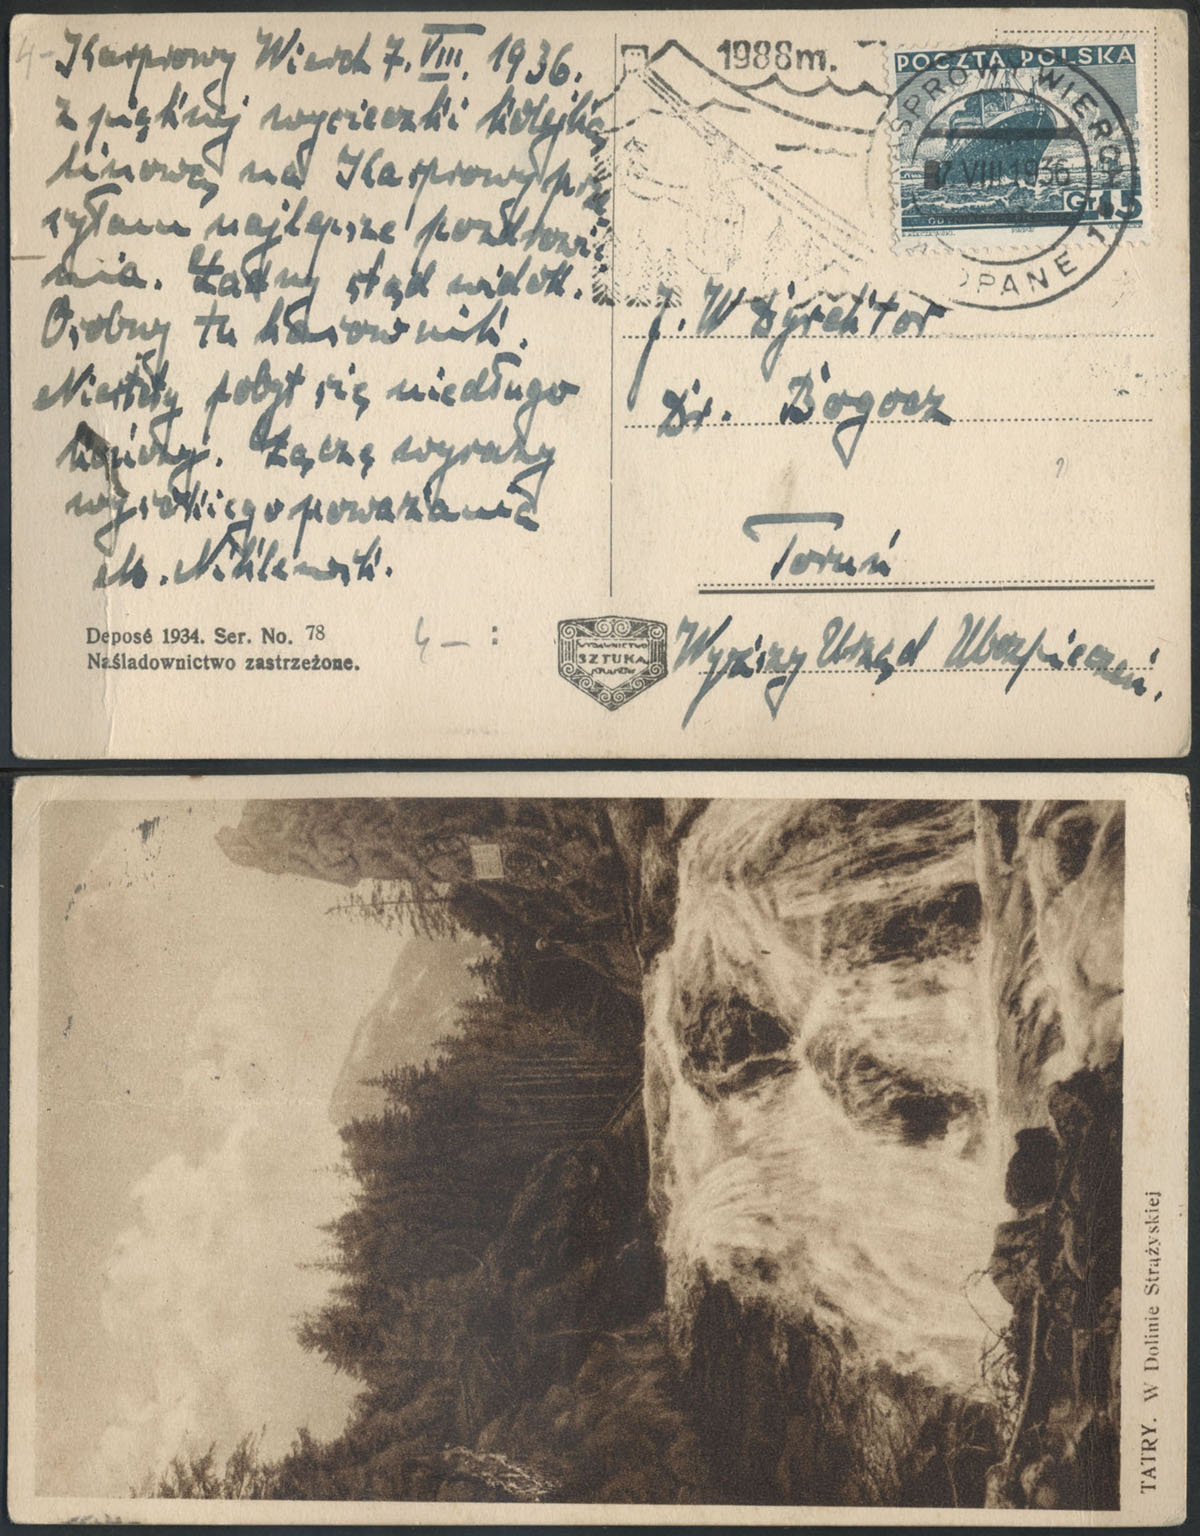 4-
Kasprowy Wierch 7.VIII.1936.
Z pięknej wycieczki kolejką
linową na Kasprowy prze
syłam najlepsze pozdrowie
nia. Ładny stąd widok.
Osobny tu kasownik.
Niestety pobyt się niedługo
kończy. Łączę wyrazy
wysokiego poważania
M.
Deposé 1934. Ser. No. 78
Naśladownictwo zastrzeżone.
4- :
WYDAWNICTWO
SZTUKA
KRAKÓW
1988m.
POCZTA POLSKA
Gr 15
KASPROWY WIERCH
7 VIII 1936
ZAKOPANE 1
J. W Dyrektor
Dr. Bogocz
Toruń
Wyższy Urząd Ubezpieczeń.
TATRY. W Dolinie Strążyskiej